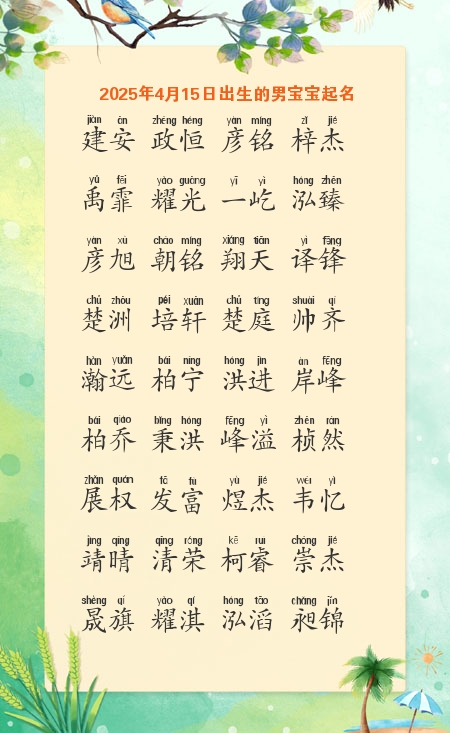 2025年4月15日出生的男宝宝起名
jiàn ān zhèng héng yàn míng zǐ jié
建安 政恒 彦铭 梓杰
yǔ fēi yào guāng yī yì hóng zhēn
禹霏 耀光 一屹 泓臻
yàn xù cháo míng xiáng tiān yì fēng
彦旭 朝铭 翔天 译锋
chǔ zhōu péi xuān chǔ tíng shuài qí
楚洲 培轩 楚庭 帅齐
hàn yuǎn bǎi níng hóng jìn àn fēng
瀚远 柏宁 洪进 岸峰
bǎi qiáo bǐng hóng fēng yì zhēn rán
柏乔 秉洪 峰溢 桢然
zhǎn quán fā fù yù jié wéi yì
展权 发富 煜杰 韦忆
jìng qíng qīng róng kē ruì chóng jié
靖晴 清荣 柯睿 崇杰
shèng qí yào qí hóng tāo chǎng jǐn
晟旗 耀淇 泓滔 昶锦